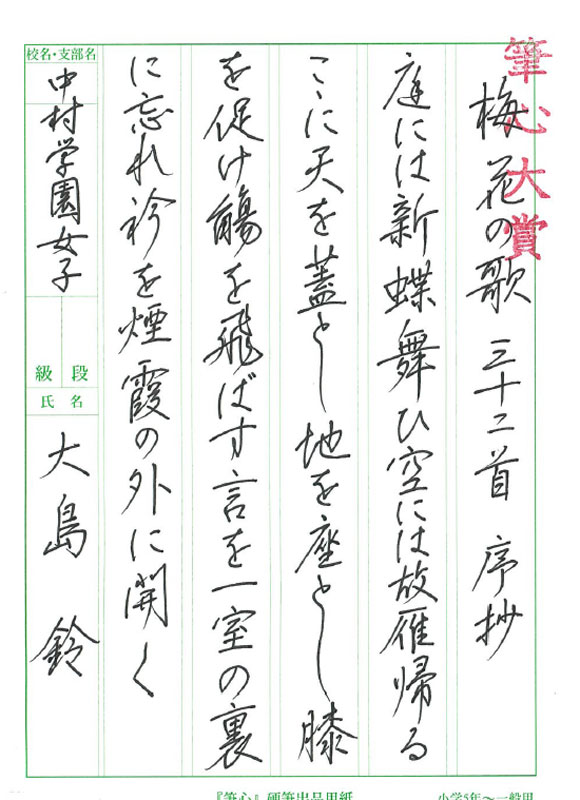 筆心大賞
梅花の歌 三十二首 序抄
庭には新蝶舞ひ空には故雁帰る
こゝに天を蓋とし地を座とし膝
を促け觴を飛ばす言を一室の裏
に忘れ衿を煙霞の外に開く
校名・支部名
中村学園女子
段
級
氏名
大島 鈴
『筆心』硬筆出品用紙
小学5年〜一般用